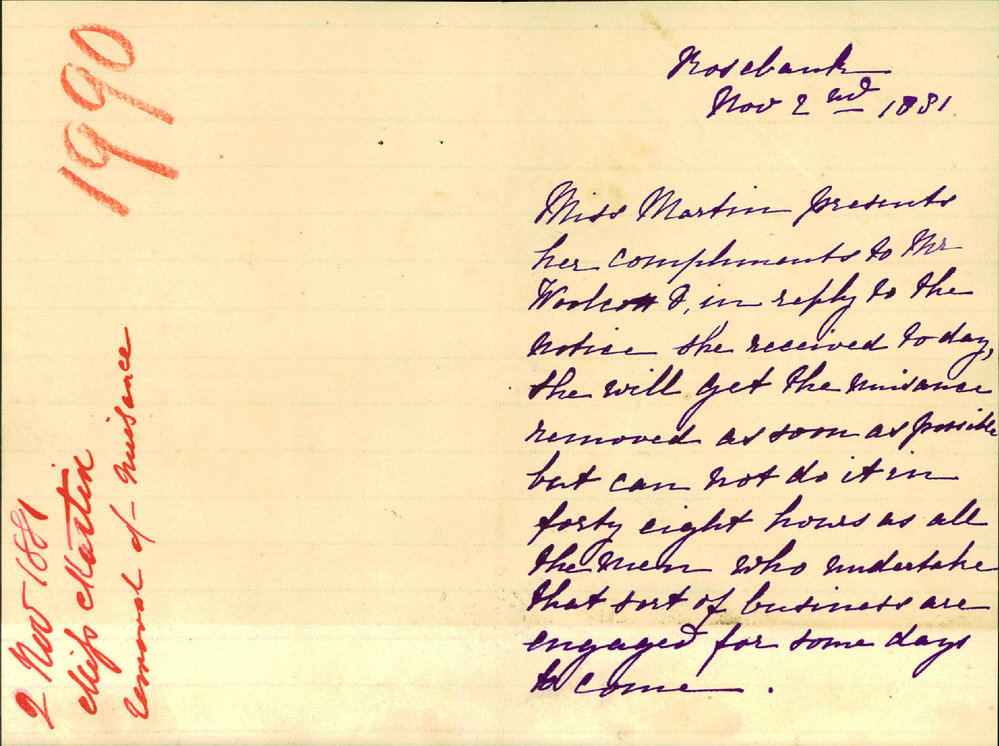 1990
2 Nov 1881
Miss Martin
removal of nuisance
Rosebank
Nov 2nd 1881
Miss Martin presents
her compliments to Mr
&, in reply to the
notice she received today,
she will get the nuisance
removed as soon as possible
but can not do it in
forty eight hours as all
the men who undertake
that sort of business are
engaged for some days
to come.